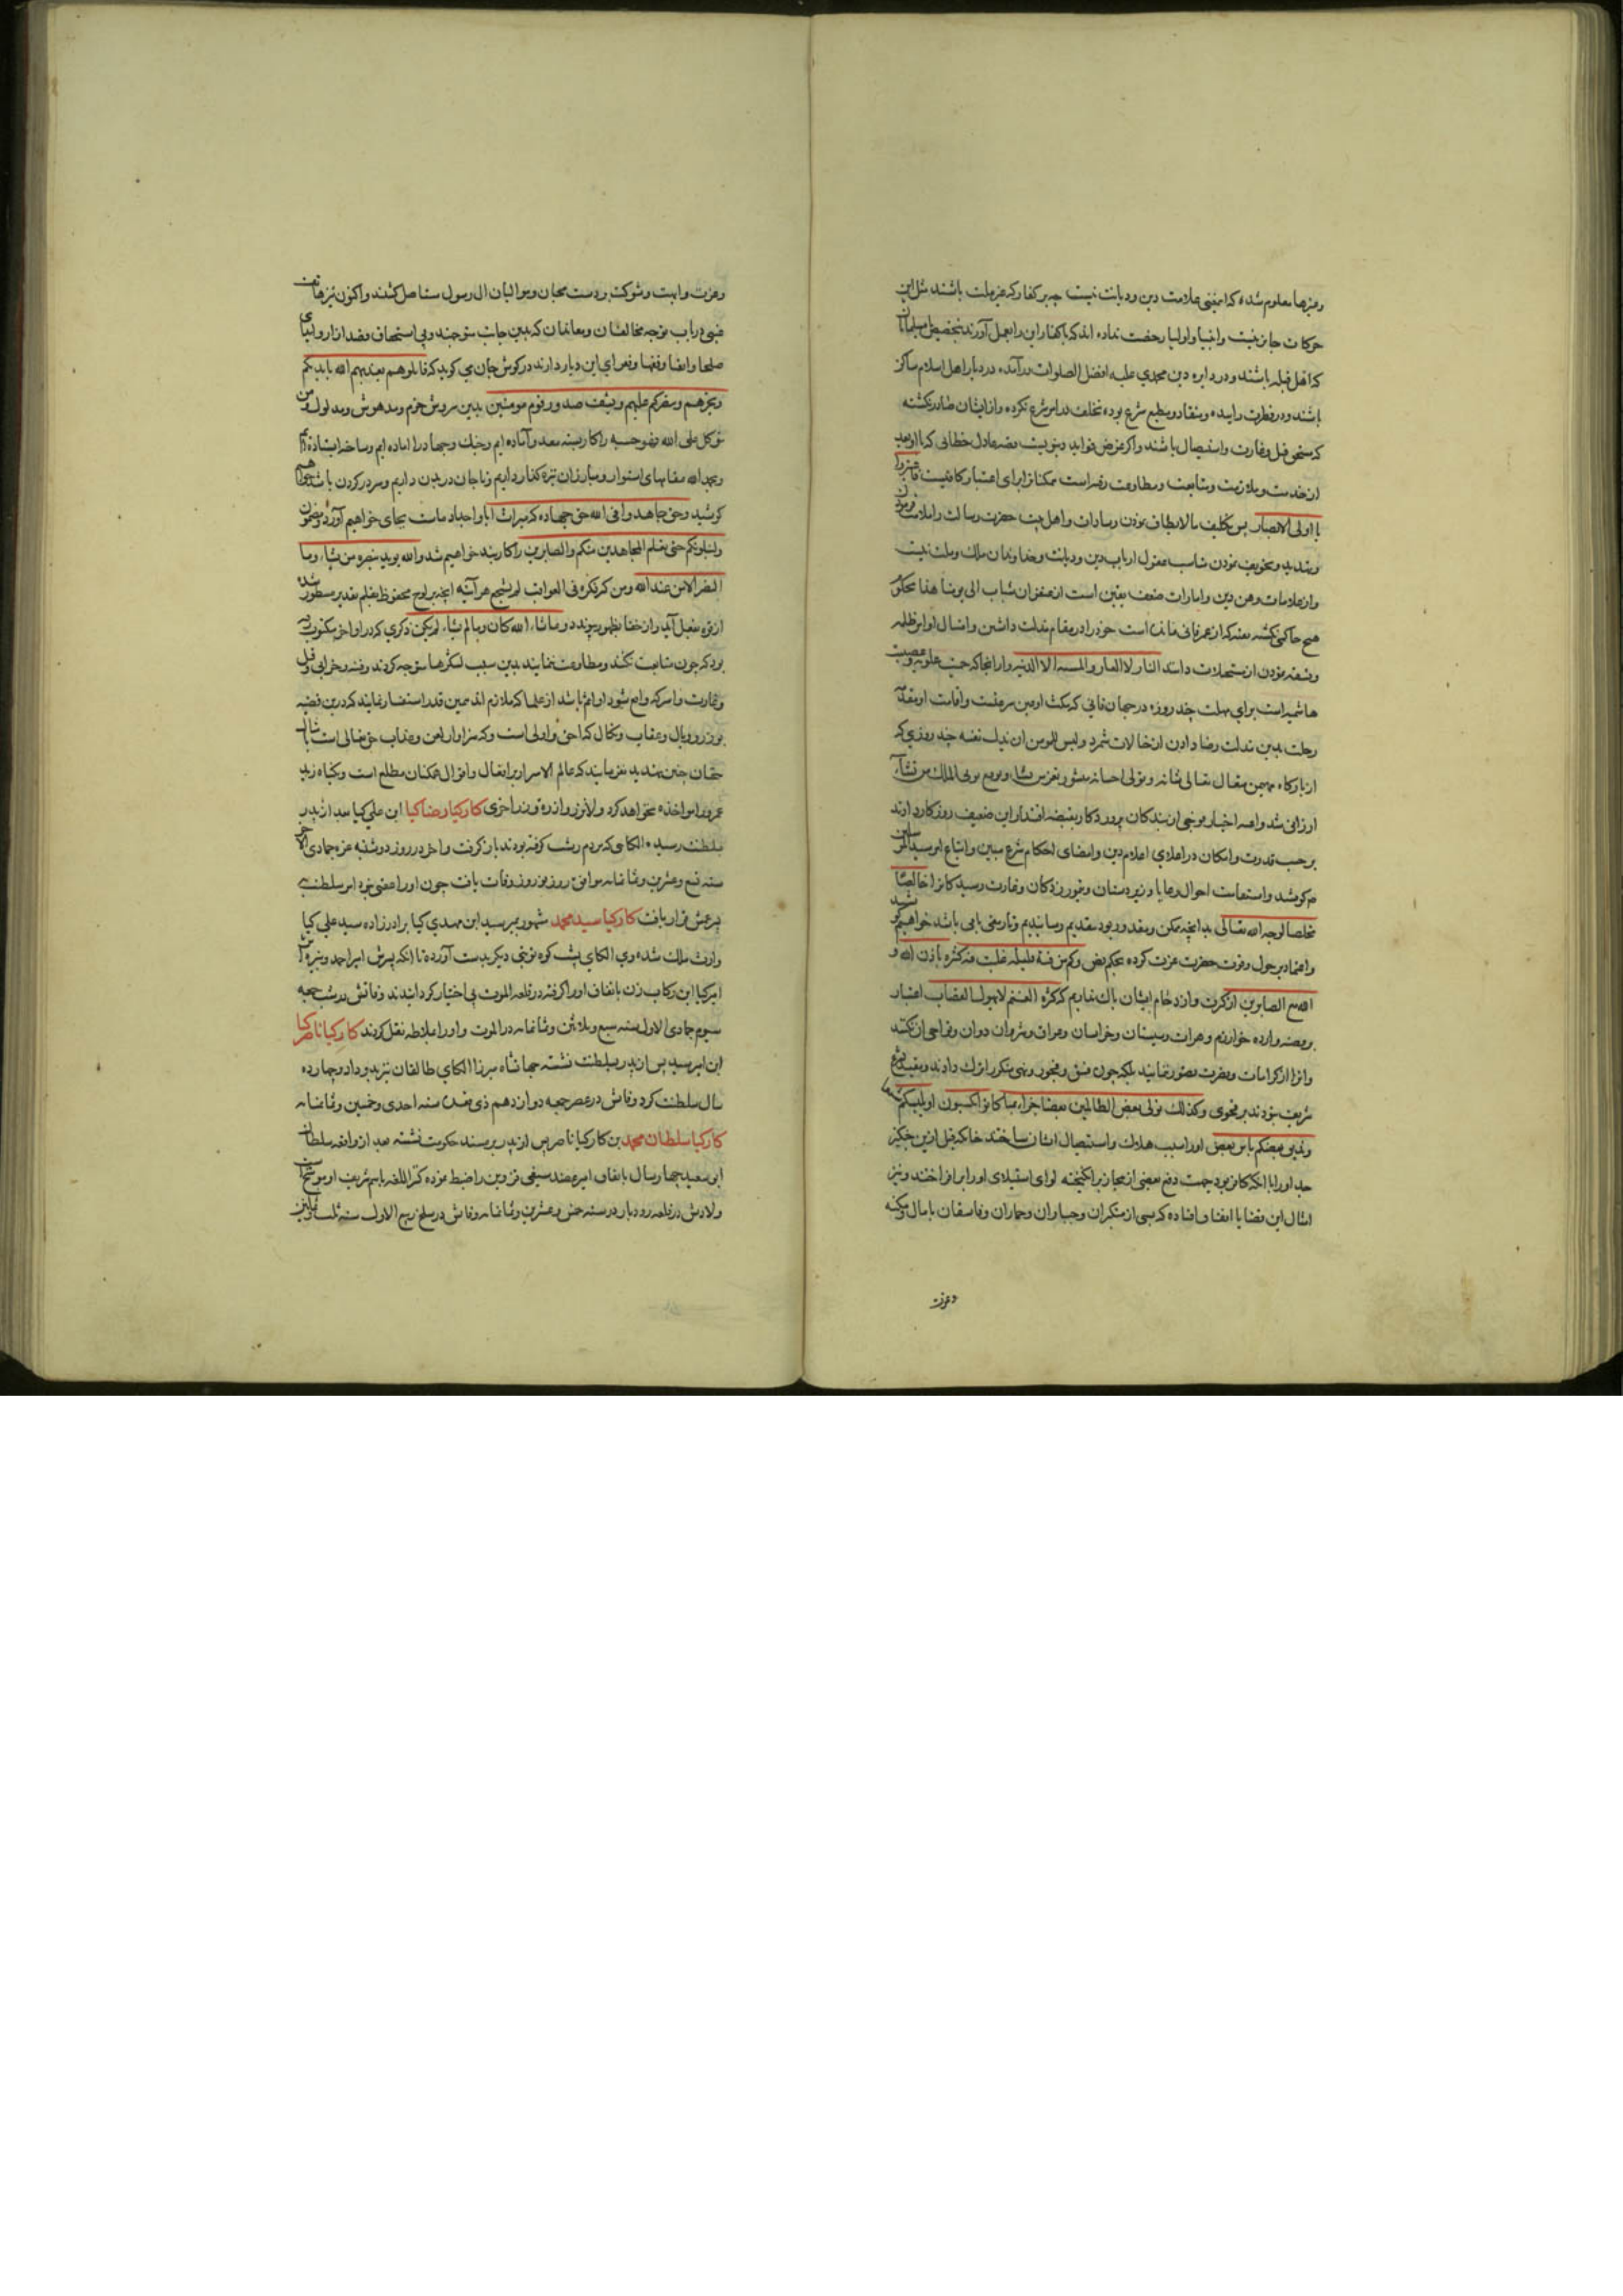 وغیرها معلوم شده که اینمعنی علامت دین و دیانت نیست چه بر کفار که غیر ملت باشند مثل این
حرکات جایز نیست و انبیا و اولیا رخصت نداده اند که با کفار این را بعمل آورند بتخصیص مسلمانان
که اهل قبله باشند و در دایره دین محمدی علیه افضل الصلوات درآمده در دیار اهل اسلام ساکن
باشند و در فطرت زاییده و منقاد و مطیع شرع بوده تخلف در امر شرع نکرده و از ایشان صادر نگشته
که مستحق قتل و غارت و استیصال باشند و اگر غرض
از خدمت و ملازمت و متابعت و مطاوعت
یا اولی الابصار پس تکلیف مالایطاق نمودن و سادات و اهل بیت حضرت رسالت را ملامت نمودن
و تهدید و تخویف نمودن مناسب عقول ارباب دین و دیانت و خداوندان ملک و ملت نیست
و از علامات وهن دین و امارات ضعف یقین است از عنفوان شباب الی یومنا هذا محکوم
هیچ حاکمی نگشته خود را در مقام مذلت داشتن و امتثال اوامر ظلمه
النار و لا العار و المنیه و لا الدنیه و از آنجا که حمیت علویه و عصبیت
هاشمیه است برای مهلت چند روزه در جهان فانی
رحلت بدین مذلت رضا دادن از محالات شمرد و لیس للمومن ان یذل نفسه چند روزی که
از بارگاه مهیمن متعال تعالی شانه و توالی احسانه منشور تعز من تشاء و توقیع توتی الملک من تشاء
ارزانی شد و امر اختیار فوجی از بندگان پروردگار بقبضه اقتدار این ضعیف روزگار دادند
بر حسب قدرت و امکان در اعلای اعلام دین و امضای احکام شرع مبین و اتباع اوامر سید المرسلین
می کوشد و استعامت احوال رعایا و زیردستان و غوررسی
مخلصا لوجه الله تعالی بدانچه ممکن و مقدور بود بتقدیم رسانیدیم و تا رمقی باقی باشد خواهیم کوشید
و اعتماد بر حول و قوت حضرت عزت کرده بحکم نص و کم من فئة قلیلة غلبت فئة کثیرة باذن الله و
الله مع الصابرین از کثرت و ازدحام ایشان باک نداریم که کثرة الغنم لا یهول القصاب اعتبار
خوارزم و هرات و سیستان و خراسان و عراق و شروان
و آنرا از کرامات و معجزات تصور ننمایند بلکه چون فسق و فجور و نهی منکر را ترک دادند
شریف نبودند بر فحوی و کذلک نولی بعض الظالمین بعضا بما کانوا یکسبون او یلبسکم شیعا
و یذیق بعضکم باس بعض او را سبب هلاک و استیصال ایشان ساختند چنانکه قبل از این چنگیز
جد او را با آنکه کافر بود جهت دفع بعضی از برانگیخته لوای استیلای او را برافراختند و نیز
امثال این قضایا اتفاق افتاده که بسی از متکبران و جباران و جهاران و فاسقان با مال و مکنه
وعزت
وعزت و ابهت و شوکت بر دست محبان و موالیان ال رسول مستاصل گشتند و اکنون نیز هاتف
غیبی در باب توجه مخالفان و معاندان که بدین جانب متوجهند و بی استحقاق قصد ازار و ایذای
صلحا و اتقیا و فقها و فقرای این دیار دارند در گوش جان می گوید که قاتلوهم یعذبهم الله بایدیکم
و یخزهم و ینصرکم علیهم و یشف صدور قوم مومنین بدین سروش خرم و مدهوش و مدلول و من
یتوکل علی الله فهو حسبه را کار بسته معد و آماده ایم و جنگ و جهاد را اماده ایم و ساخته ایستاده ایم
و بحمد الله مقامهای استوار و مبارزان نیزه گذار داریم و تا جان در بدن داریم و سر در گردن باشد خواهیم
کوشید و حق جاهدوا فی الله حق جهاده که میراث آبا و اجداد ماست بجای خواهیم آورد و مضمون
ولنبلونکم حتی نعلم المجاهدین منکم و الصابرین را کاربند خواهیم شد و الله یوید بنصره من یشاء و ما
النصر الا من عند الله و من کثر فکره فی العواقب لم یشجع هر آینه آنچه بر لوح محفوظ بقلم تقدیر مسطور شده
از قوه بفعل آید و از خفا بظهور پیوندد و ما شاء الله کان و ما لم یشاء لم یکن دگری که در اواخر مکتوب
بود که چون متابعت نکنند و مطاوعت ننمایند بدین سبب لشکرها متوجه گردند و فتنه و خرابی و قتل
و غارت و اسر که واقع شود او اثم باشد از علما که ملازم اند همین قدر استفسار نمایند که درین قضیه
بوزر و وبال و عقاب و نکال که احق و اولی است و که سزاوار لعن و عذاب حق تعالی است
چنین تهدید نفرمایند که عالم الاسرار بر افعال و اقوال همکنان مطلع است و بگناه زید
عمرو را مواخذه نخواهد کرد و لا تزر وازرة وزر اخری کارکیا رضا کیا ابن علی کیا بعد از پدر
بسلطنت رسیده الکای که مردم رشت گرفته بودند باز گرفت و اخر در روز دوشنبه غره جمادی الاخر
سنه تسع و عشرین و ثمانمائه موافق روز نوروز وفات یافت چون او را عقبی نبود امر سلطنت
بر عمش قرار یافت کارکیا سید محمد مشهور بمیر سید ابن مهدی کیا برادرزاده سید علی کیا
وارث ملک شده وی الکای پشت کوه نوبتی دیگر بدست آورده تا آنکه پسرش امیر احمد و نبیره
امیر کیا ابن رکاب زن باتفاق او را گرفته در قلعه الموت بی اختیار گردانیدند وفاتش در شب جمعه
سیوم جمادی الاول سنه سبع و ثلاثین و ثمانمائه در الموت و او را بملاط نقل کردند کارکیا ناصر کیا
ابن امیر سید پس از پدر بسلطنت نشسته جهانشاه میرزا الکای طالقان نیز بدو داد و چهارده
سال سلطنت کرد وفاتش در عصر جمعه دوازدهم ذی قعده سنه احدی و خمسین و ثمانمائه
کارکیا سلطان محمد بن کارکیا ناصر پس از پدر بر مسند حکومت نشسته بعد از واقعه سلطان
ابو سعید چهار سال باتفاق امیر عضد سیفی قزوین را ضبط نموده کثر اللغه باسم شریف او موشح است
ولادتش در قلعه رودبار در سنه خمس و عشرین و ثمانمائه وفاتش در سلخ ربیع الاول سنه ثلث و ثمانین